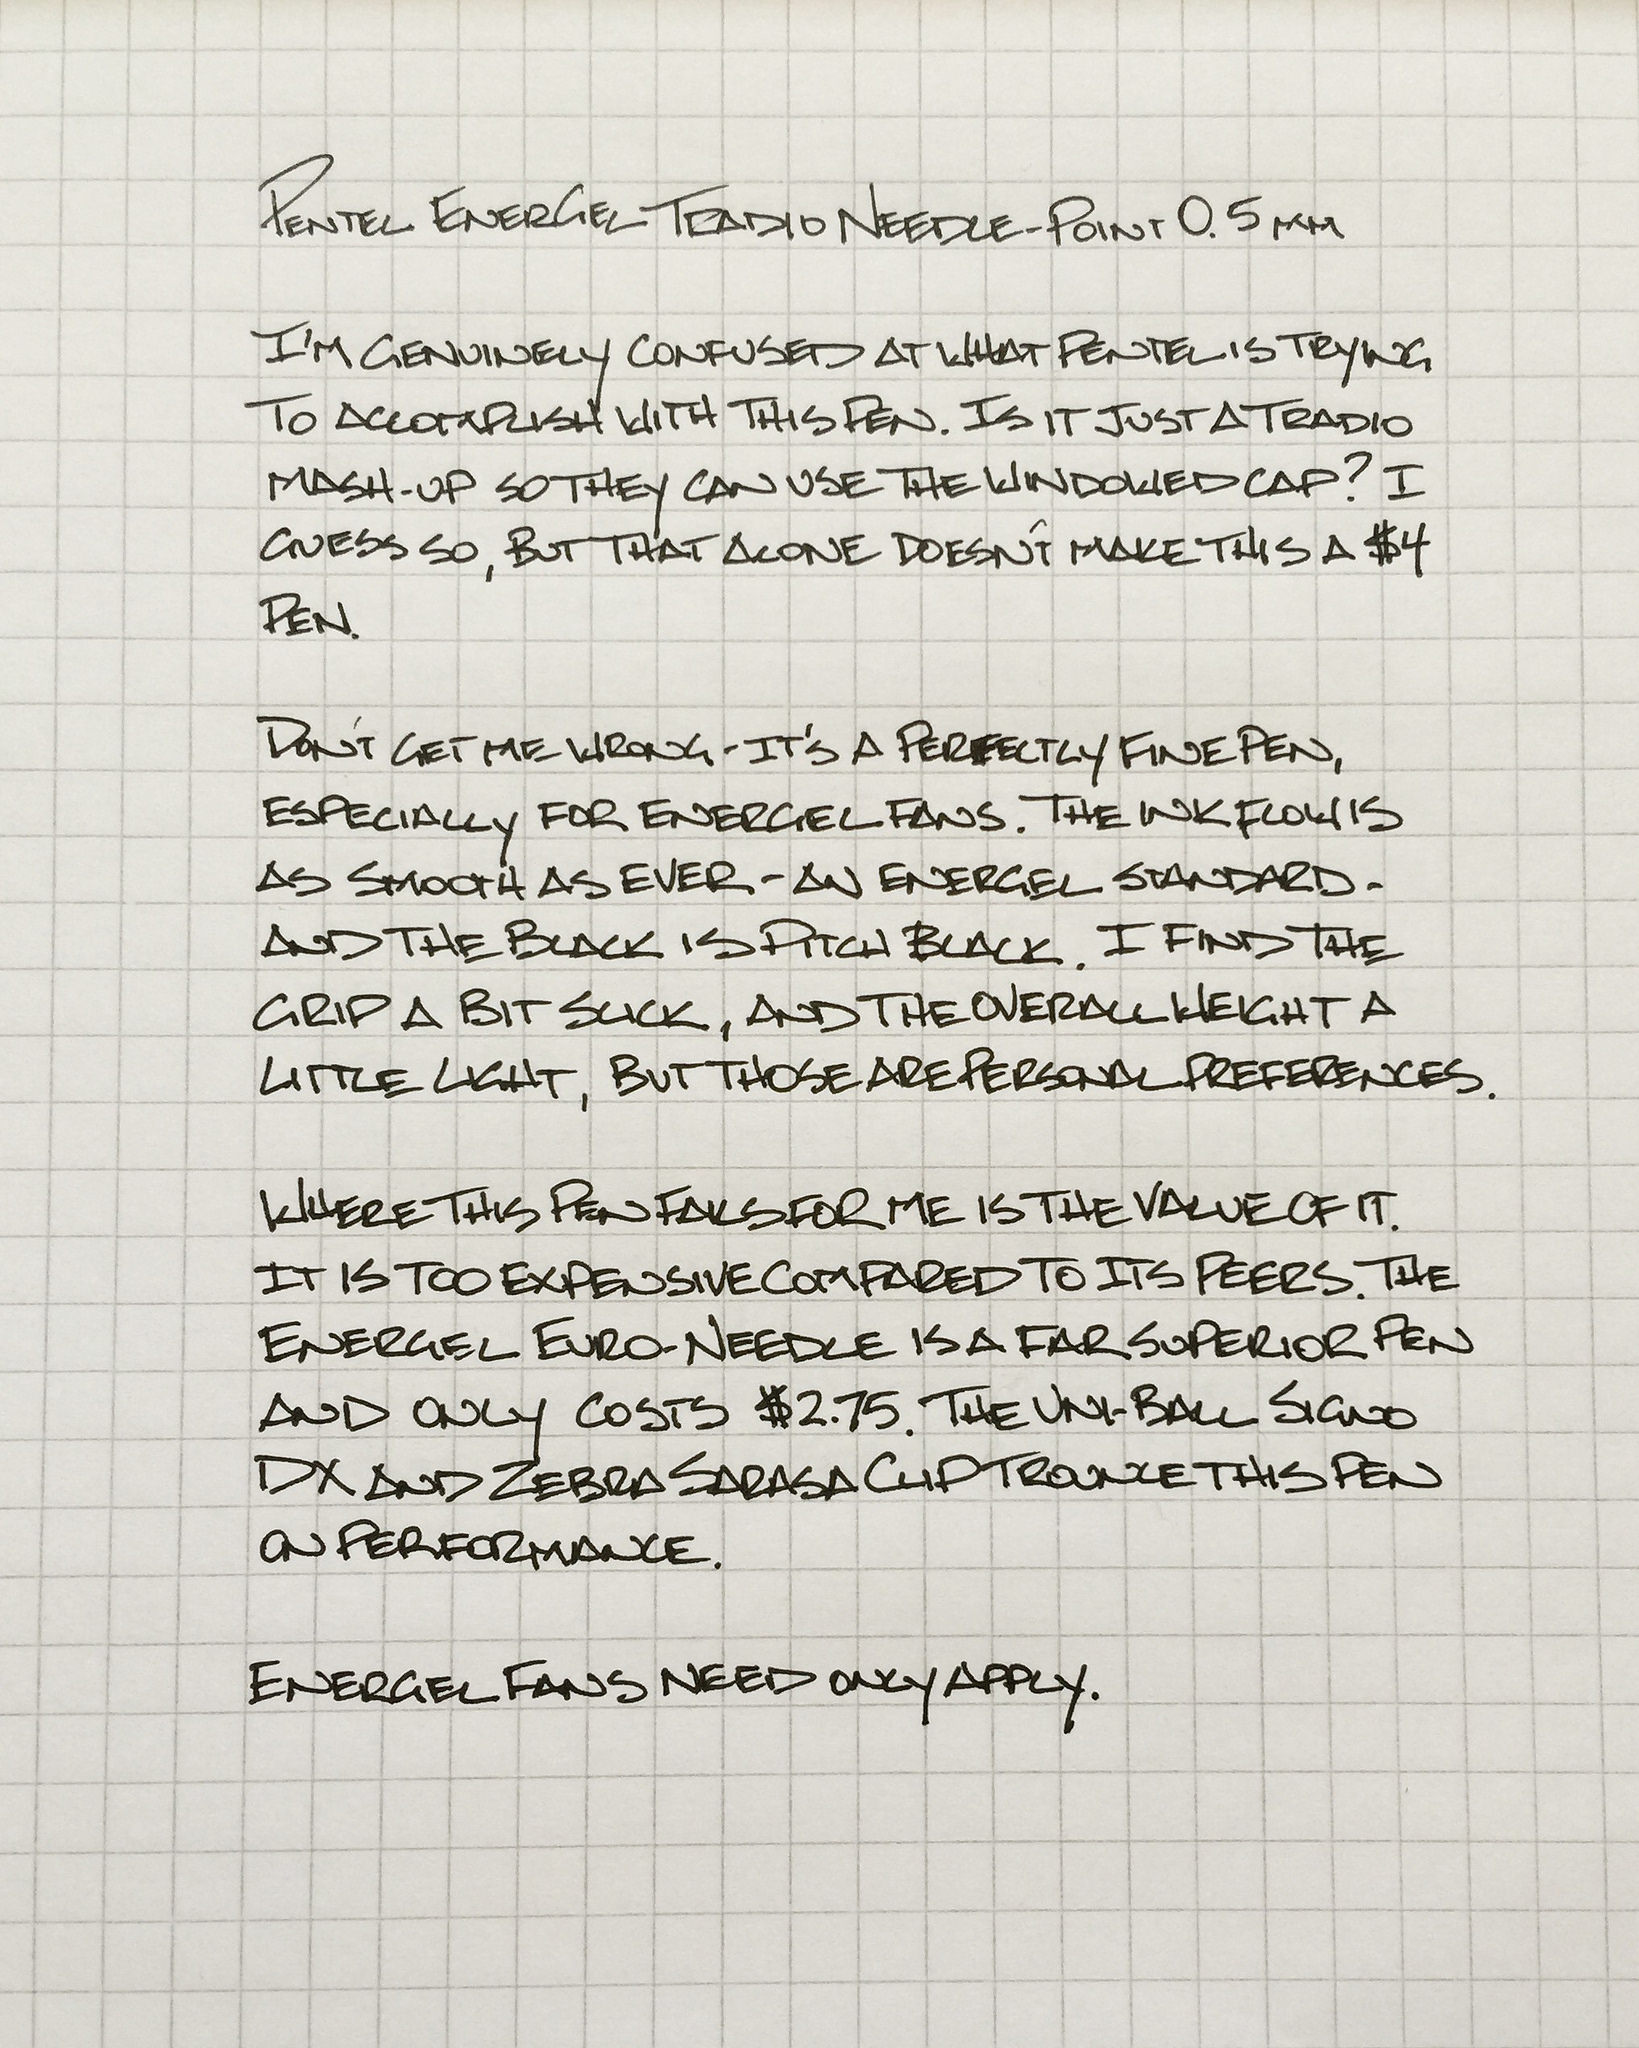 PENTEL ENERGEL TRADIO NEEDLE-POINT 0.5MM
I'M GENUINELY CONFUSED AT WHAT PENTEL IS TRYING
TO ACCOMPLISH WITH THIS PEN. IS IT JUST A TRADIO
MASH-UP SO THEY CAN USE THE WINDOWED CAP? I
GUESS SO, BUT THAT ALONE DOESN'T MAKE THIS A $4
PEN.
DON'T GET ME WRONG - IT'S A PERFECTLY FINE PEN,
ESPECIALLY FOR ENERGEL FANS. THE INK FLOW IS
AS SMOOTH AS EVER - AN ENERGEL STANDARD -
AND THE BLACK IS PITCH BLACK. I FIND THE
GRIP A BIT SLICK, AND THE OVERALL WEIGHT A
LITTLE LIGHT, BUT THOSE ARE PERSONAL PREFERENCES.
WHERE THIS PEN FAILS FOR ME IS THE VALUE OF IT.
IT IS TOO EXPENSIVE COMPARED TO ITS PEERS. THE
ENERGEL EURO-NEEDLE IS A FAR SUPERIOR PEN
AND ONLY COSTS $2.75. THE UNI-BALL SIGNO
DX AND ZEBRA SARASA CLIP TROUNCE THIS PEN
ON PERFORMANCE.
ENERGEL FANS NEED ONLY APPLY.